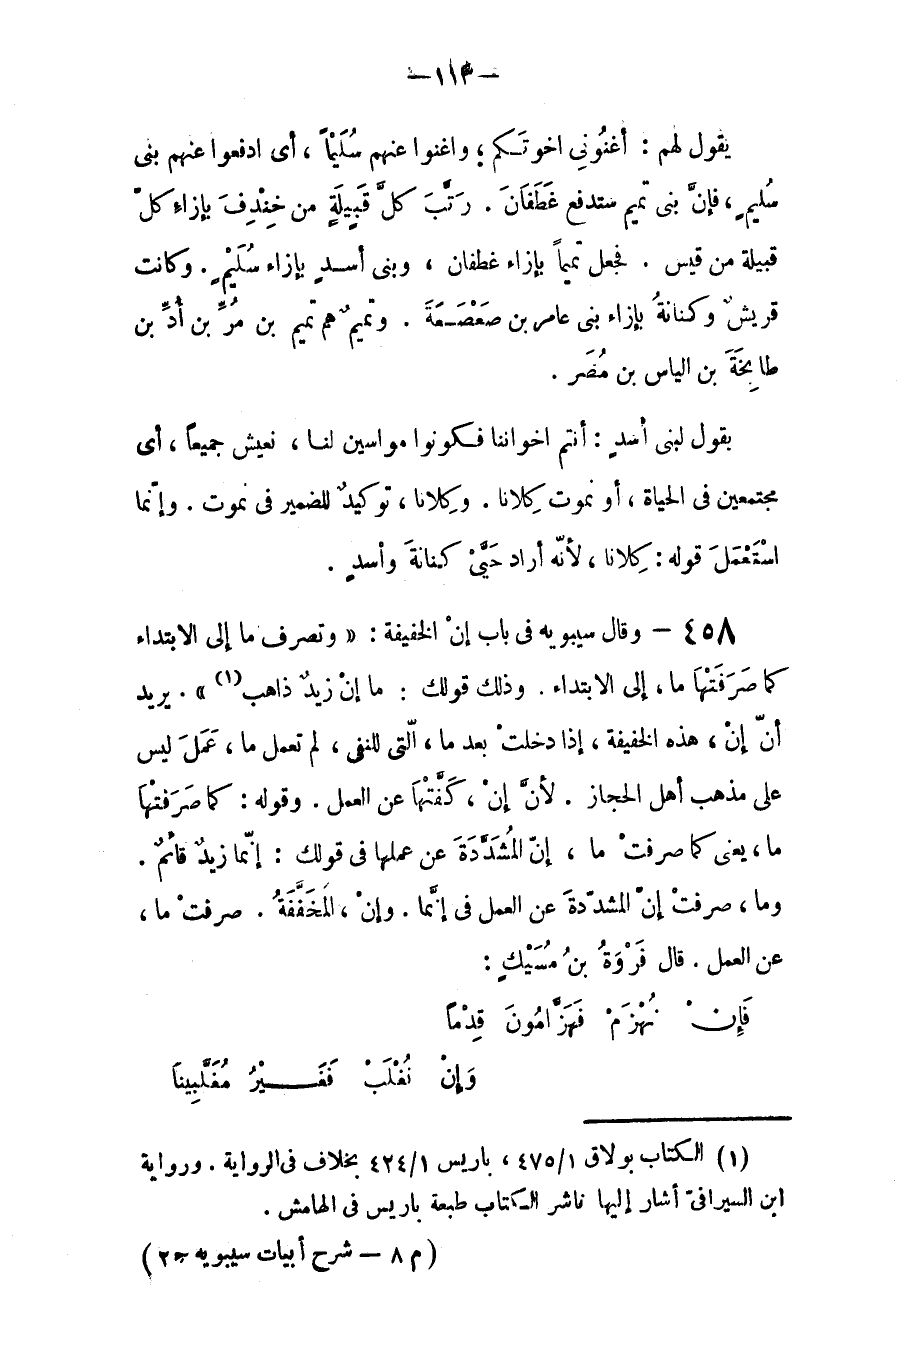 — ١١٣ —
يقول لهم : أغنُوني اخوتـكم ؛ واغنوا عنهم سُلَيْماً ، أى ادفعوا عنهم بنى
سُليمٍ ، فإنَّ بنى تميم ستدفع غَطَفَانَ . رَتَّبَ كلَّ قَبِيلَةٍ من خِنْدِفَ بإزاءِ كلّ
قبيلة من قيس . فجعل تميماً بإزاء غطفان ، وبنى أسـدٍ بإزاء سُلَيْمٍ . وكانت
قريشٌ وكنانةُ بإزاء بنى عامر بن صَعْصَـعَةَ . وتميمٌ هم تميم بن مُرِّ بن أُدِّ بن
طابِخَةَ بن الياس بن مُضَر .
يقول لبنى أسدٍ : أنتم اخواننا فـكونوا مواسين لنـا ، نعيش جميعاً ، أى
مجتمعين فى الحياة ، أو نموت كِلانا . وكِلانا ، توكيدٌ للضمير فى نموت . وإنّما
اسْتَعْمَلَ قوله : كِلانا ، لأنّه أراد حَيَّىْ كنانةَ وأسدٍ .
٤٥٨ — وقال سيبويه فى باب إنْ الخفيفة : « وتصرف ما إلى الابتداء
كما صَرَفَتْهَا ما ، إلى الابتداء . وذلك قولك : ما إنْ زيدٌ ذاهب(١) » . يريد
أنّ إنْ ، هذه الخفيفة ، إذا دخلتْ بعد ما ، الّتى للنفى ، لم تعمل ما ، عَمَلَ ليس
على مذهب أهل الحجاز . لأنَّ إنْ ، كَفَّتْهَا عن العمل . وقوله : كما صَرَفَتْهَا
ما ، يعنى كما صرفتْ ما ، إنّ المُشَدَّدَةَ عن عملها فى قولك : إنّما زيدٌ قائمٌ .
وما ، صرفتْ إنّ المشدّدةَ عن العمل فى إنَّما . وإنْ ، المُخَفَّفَةُ . صرفتْ ما ،
عن العمل . قال فَرْوَةُ بنُ مُسَيْكٍ :
فَإِنْ نُهْزَمْ فَهَزَّامُونَ قِدْماً
وَإِنْ نُغْلَبْ فَغَـــيْرُ مُغَلَّبِينَا
(١) الـكتاب بولاق ٤٧٥/١ ، باريس ٤٢٤/١ بخلاف فى الرواية . ورواية
ابن السيرافىّ أشار إليها ناشر الـكتاب طبعة باريس فى الهامش .
(م ٨ — شرح أبيات سيبويه جـ٢)